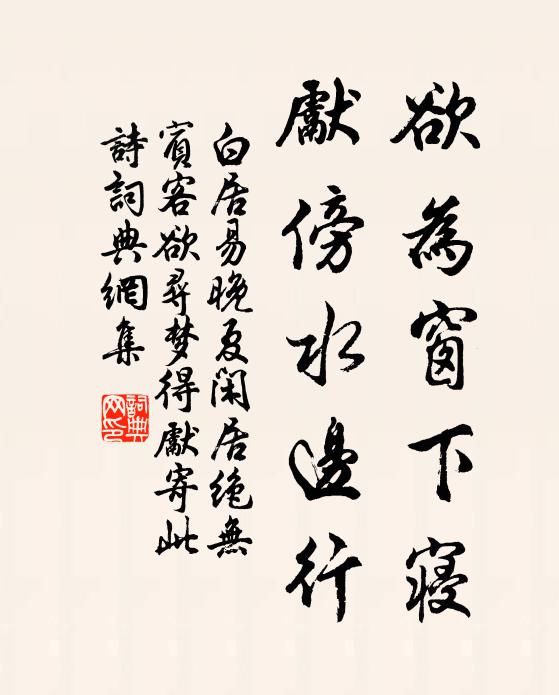 欲為窗下寢
獻傍水邊行
白居易晚夏閑居絶無
賓客欲尋梦得獻寄此
詩詞典網集
詞典
网印